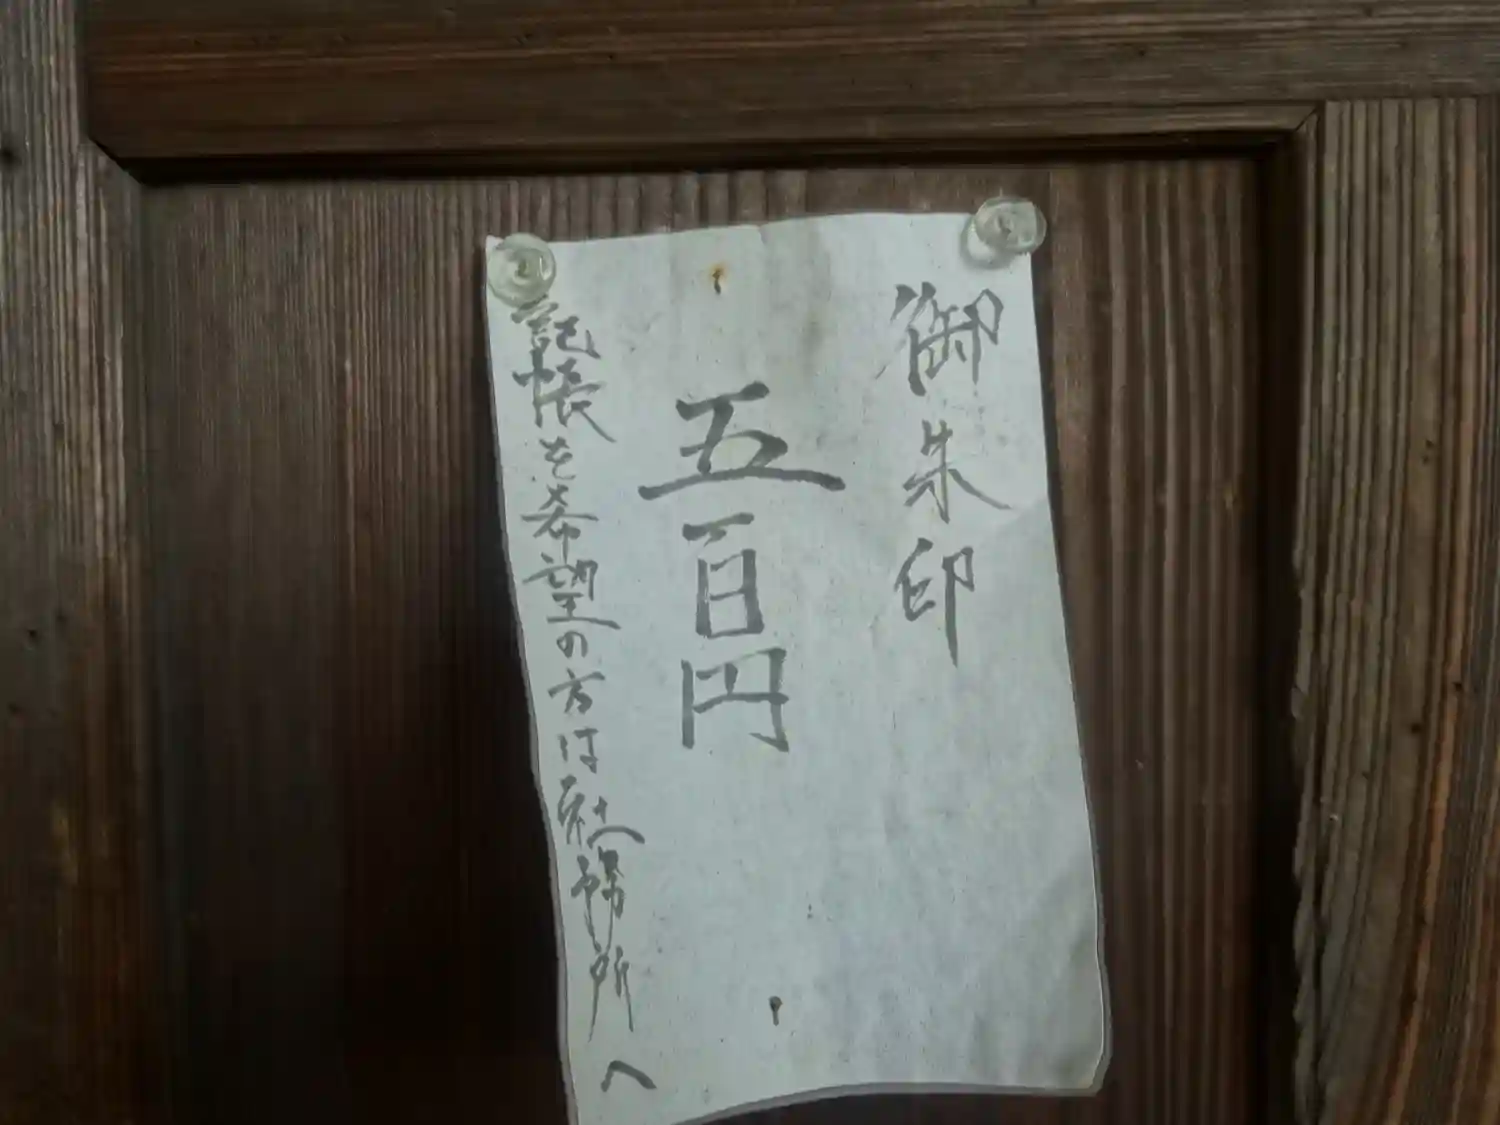 御朱印
五百円
記帳を希望の方は社務所へ